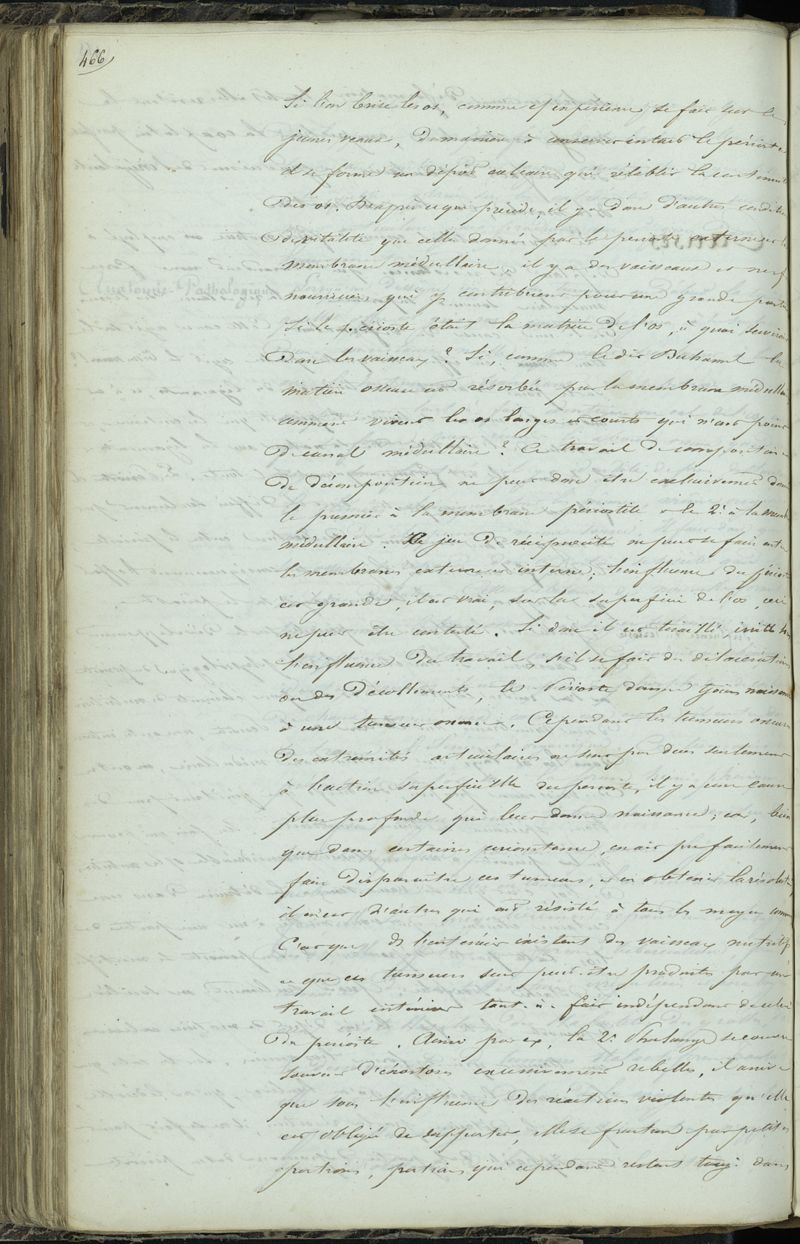 466
Si l'on brise les os, comme expérience se fait sur les
jeunes veaux, de manière à conserver intact le périoste
il se forme un dépôt calcaire qui rétablit la continuité
des os. D'après ce que précède, il y a donc d'autres conditions
de vitalité que celle donnée par le périoste externe et la
membrane médullaire, il y a des vaisseaux et nerfs
nourriciers qui y contribuent pour une grande partie
Si le périoste était la matrice de l'os, à quoi serviraient
donc les vaisseaux ? Si, comme le dit Duhamel la
matière osseuse est résorbée par la membrane médullaire
comment vivent les os larges et courts qui n'ont point
de canal médullaire ? Ce travail de composition et
de décomposition ne peut donc être exclusivement donné
le premier à la membrane périostite et le 2e à la membrane
médullaire. Ce jeu de réciprocité ne peut se faire entre
les membranes externe et interne ; l'influence du périoste
est grande, il est vrai, sur la superficie de l'os, ceci
ne peut être contesté. Si donc il est tiraillé irrité sous
l'influence du travail, s'il se fait des dilacérations
ou des décollements, le Périoste donne naissance
à une tumeur osseuse. Cependant les tumeurs osseuses
des extrémités articulaires ne sont pas dues seulement
à l'action superficielle du périoste, il y a une cause
plus profonde qui leur donne naissance ; car, bien
que dans certaines circonstances, on ait pu facilement
faire disparaître ces tumeurs, et en obtenir la résolution,
il en est d'autres qui ont résisté à tous les moyens connus
C'est que de l'intérieur existent des vaisseaux nutritifs
et que ces tumeurs sont peut-être produites par un
travail intérieur tout-à-fait indépendant de celui
du périoste. Ainsi par ex, la 2e Phalange se couvre
souvent d'exostoses excessivement rebelles, il arrive
que sous l'influence des réactions violentes qu'elle
est obligée de supporter, elle se fracture par petites
portions, portions qui cependant restent touj. dans